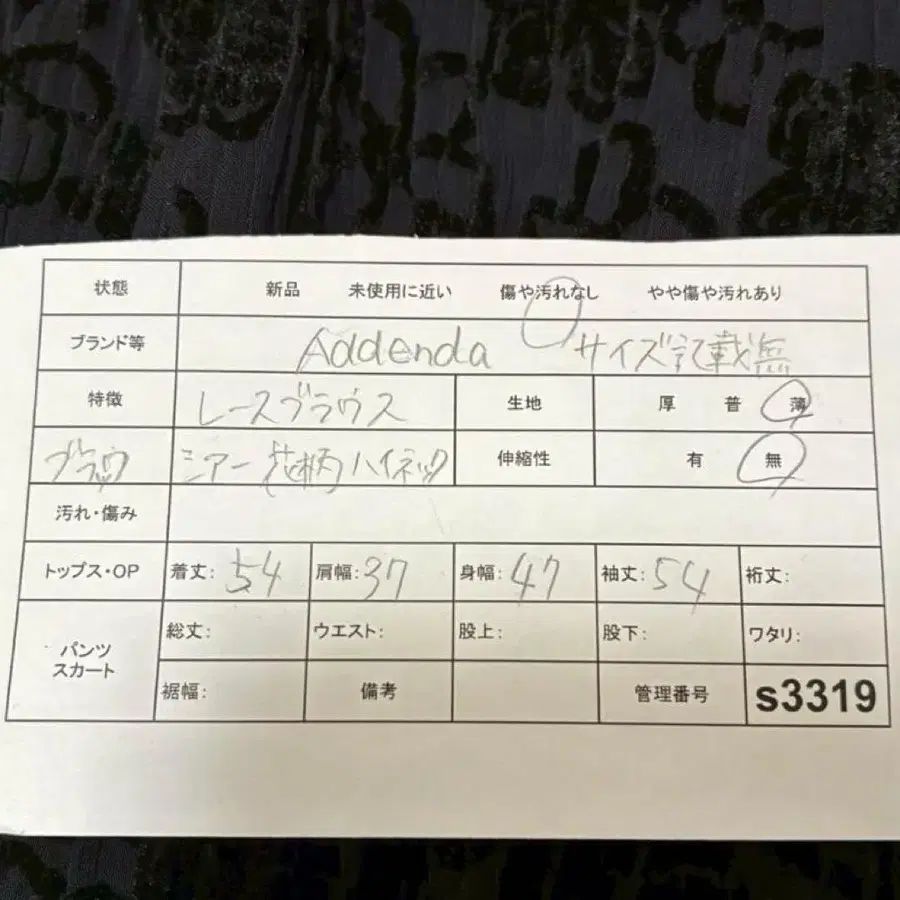 状態 新品 未使用に近い 傷や汚れなし やや傷や汚れあり
ブランド等 Addenda サイズ記載無
特徴 レースブラウス 生地 厚 普 薄
ブラウ シアー 花柄 ハイネック 伸縮性 有 無
汚れ・傷み
トップス・OP 着丈: 54 肩幅: 37 身幅: 47 袖丈: 54 裄丈:
パンツ スカート 総丈: ウエスト: 股上: 股下: ワタリ:
裾幅: 備考 管理番号 s3319